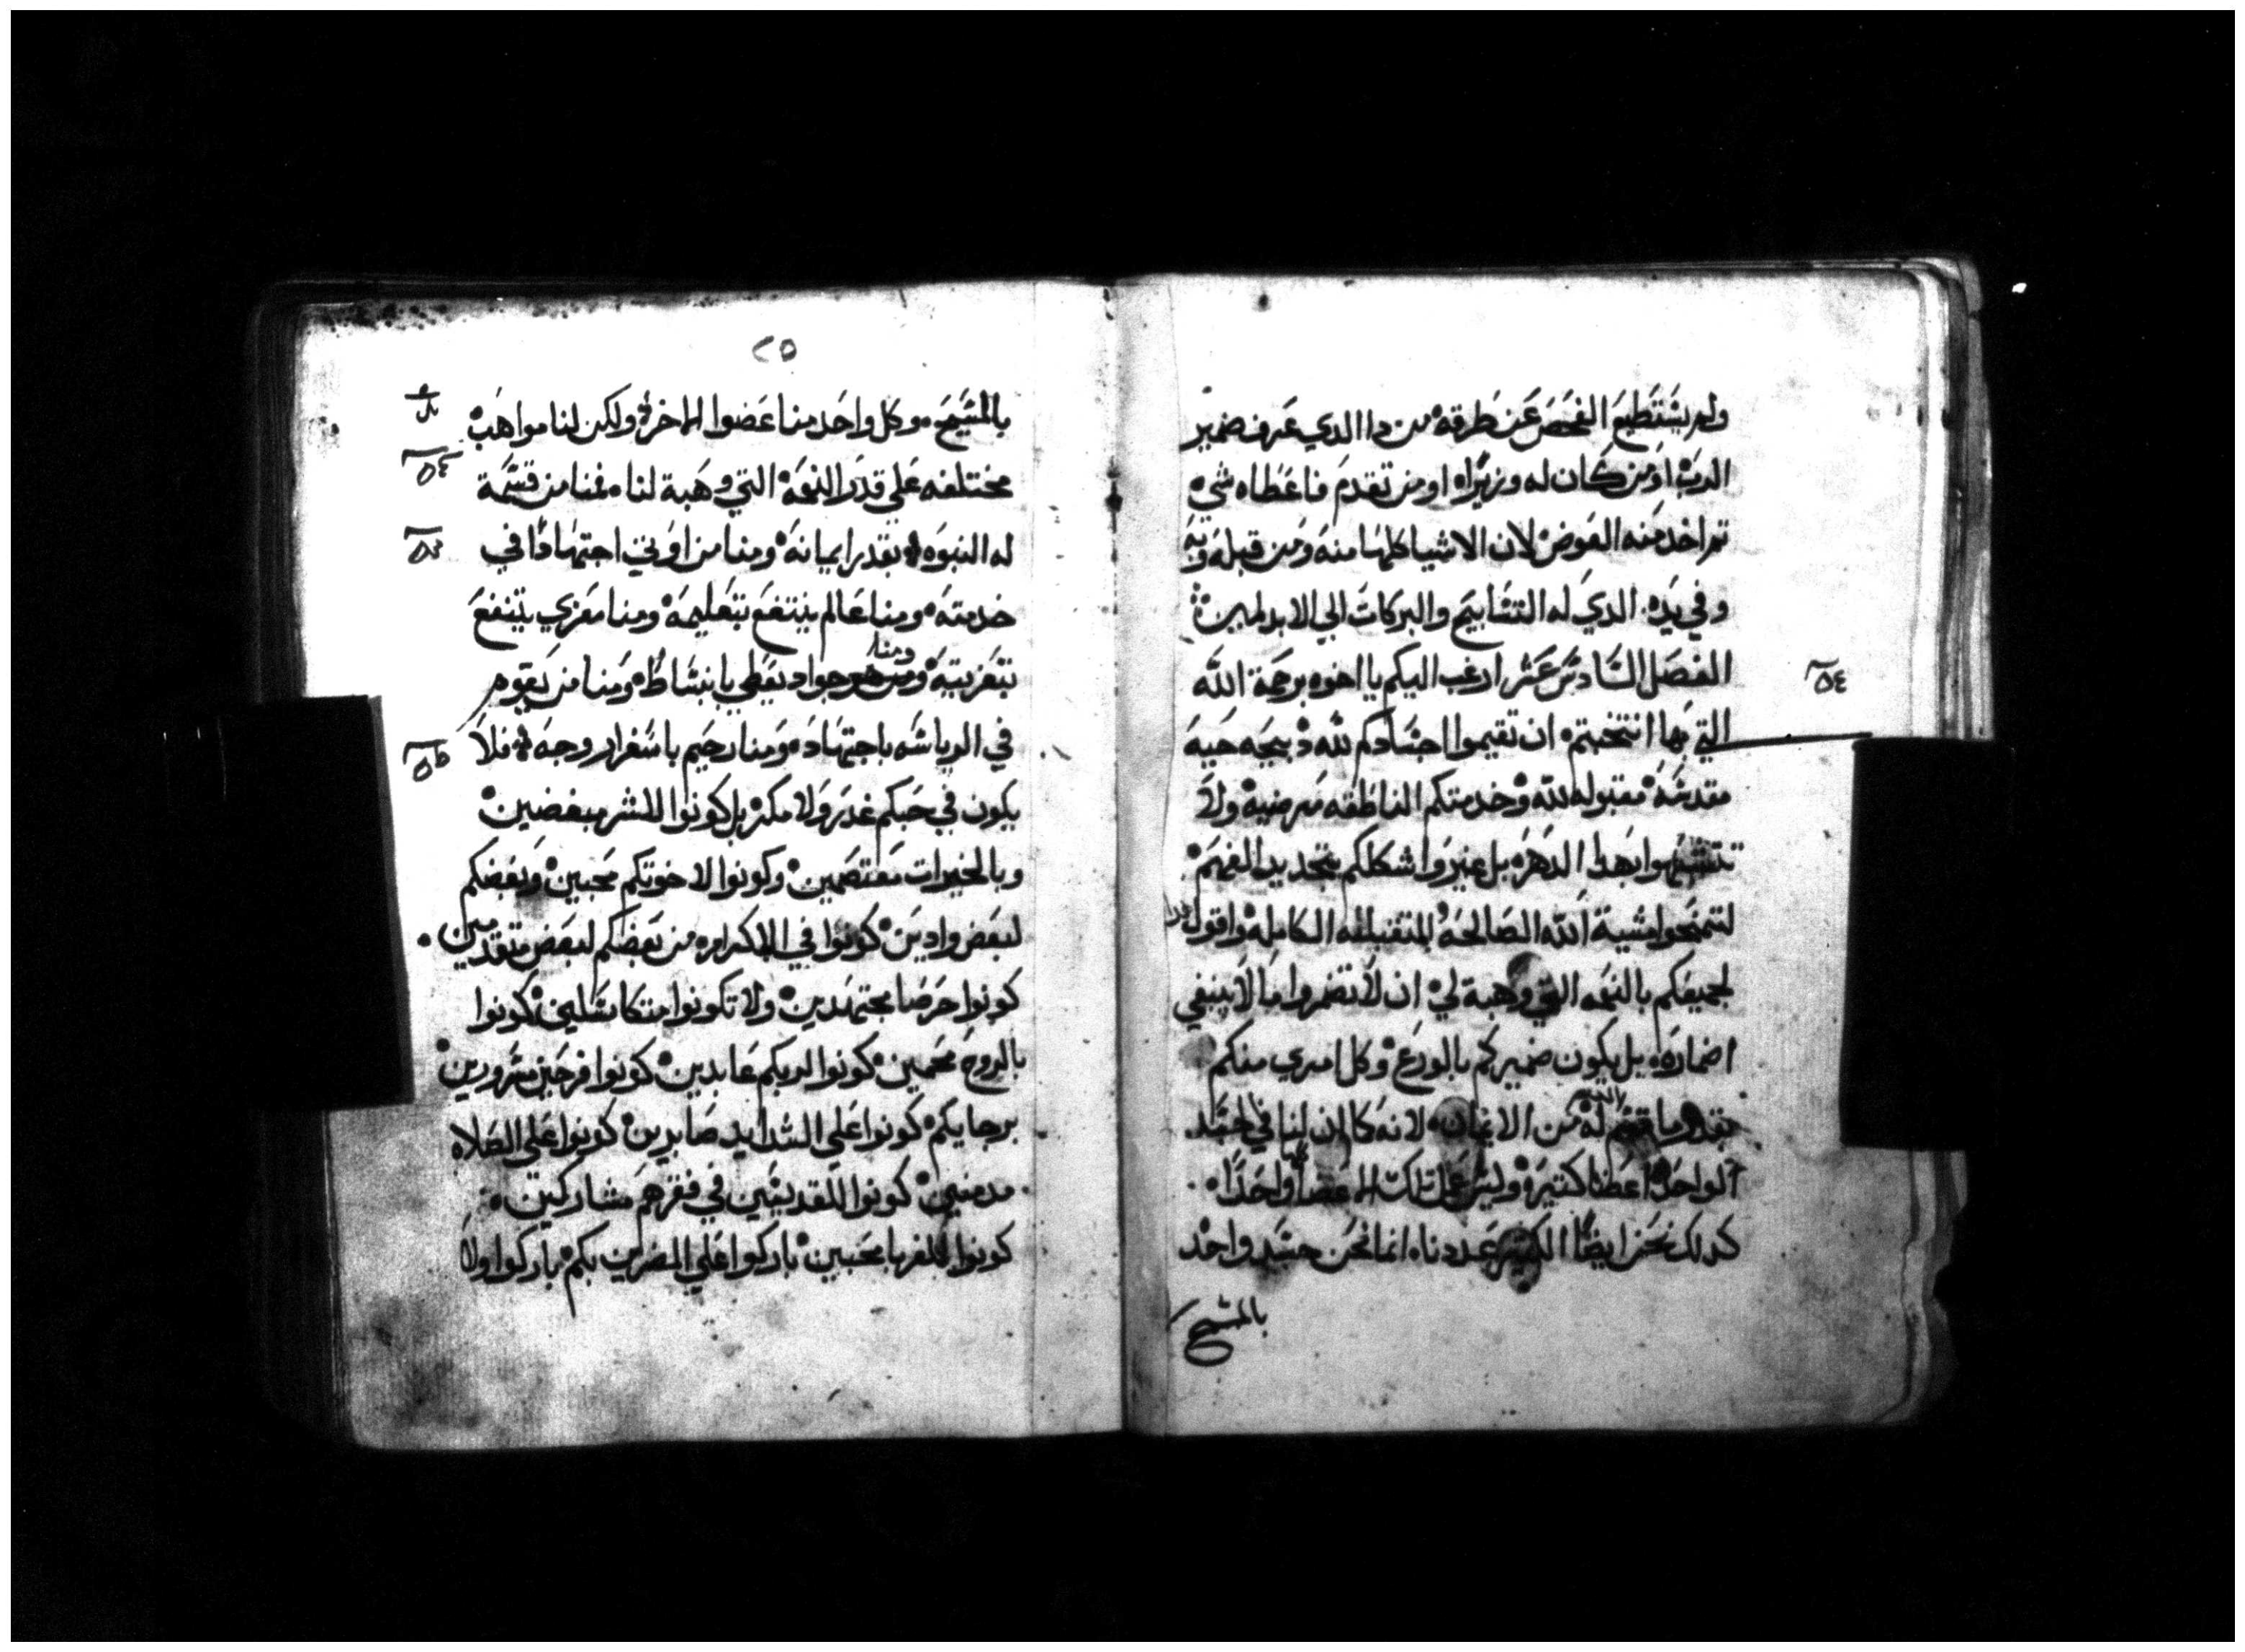 ولم يستطيع الفحص عن طرقه من دا الدي عرف ضمير
الرب او من كان له وزيرا او من تقدم فاعطاه شي
تم اخد منه العوض لان الاشيا كلها منه ومن قبله وبه
وفي يده الدي له التسابيح والبركات الي الابد امين
الفصل السادس عشر ارغب اليكم يا اخوه برحمة الله
التي بها انتخبتم ان تقيموا اجسادكم لله دبيحه حيه
مقدسه مقبوله لله وخدمتكم الناطقه مرضيه ولا
تتشبهوا بهدا الدهر بل غيروا اشكالكم بتجديد الفهم
لتمتحنوا مشية الله الصالحه المتقبله الكامله واقول
لجميعكم بالنعمه التي وهبة لي ان لا تضمروا ما لا ينبغي
اضماره بل يكون ضميركم بالورع وكل امري منكم
بقدر ما قسم الله له من الايمان لانه كما ان لنا في جسد
الواحد اعضا كتيره وليس عمل تلك الاعضا واحدا
كدلك نحن ايضا الكتير عددنا انما نحن جسد واحد
بالمسيح
٢٥
بالمسيح وكل واحد منا عضوا الاخر ولكن لنا مواهب
مختلفه علي قدر النعمه التي وهبة لنا فمنا من قسمة
له النبوه بقدر ايمانه ومنا من اوتي اجتهادا في
خدمته ومنا عالم ينتفع بتعليمه ومنا معزي ينتفع
بتعزيته ومنا جواد يعطي بانبساط ومنا من يقوم
في الرياسه باجتهاده ومنا رحيم باسفرار وجهه فلا
يكون في حبكم غدر ولا مكر بل كونوا للشر مبغضين
وبالخيرات معتصمين وكونوا لاخوتكم محبين وبعضكم
لبعض وادين كونوا في الاكرام من بعضكم لبعض متقدمين
كونوا حرصا مجتهدين ولا تكونوا متكاسلين كونوا
بالروح محميين كونوا لربكم عابدين كونوا فرحين مسرورين
برجايكم كونوا علي الشدايد صابرين كونوا علي الصلاه
مدمنين كونوا للقديسين في فقرهم مشاركين
كونوا للغربا محبين باركوا علي المضرين بكم باركوا ولا